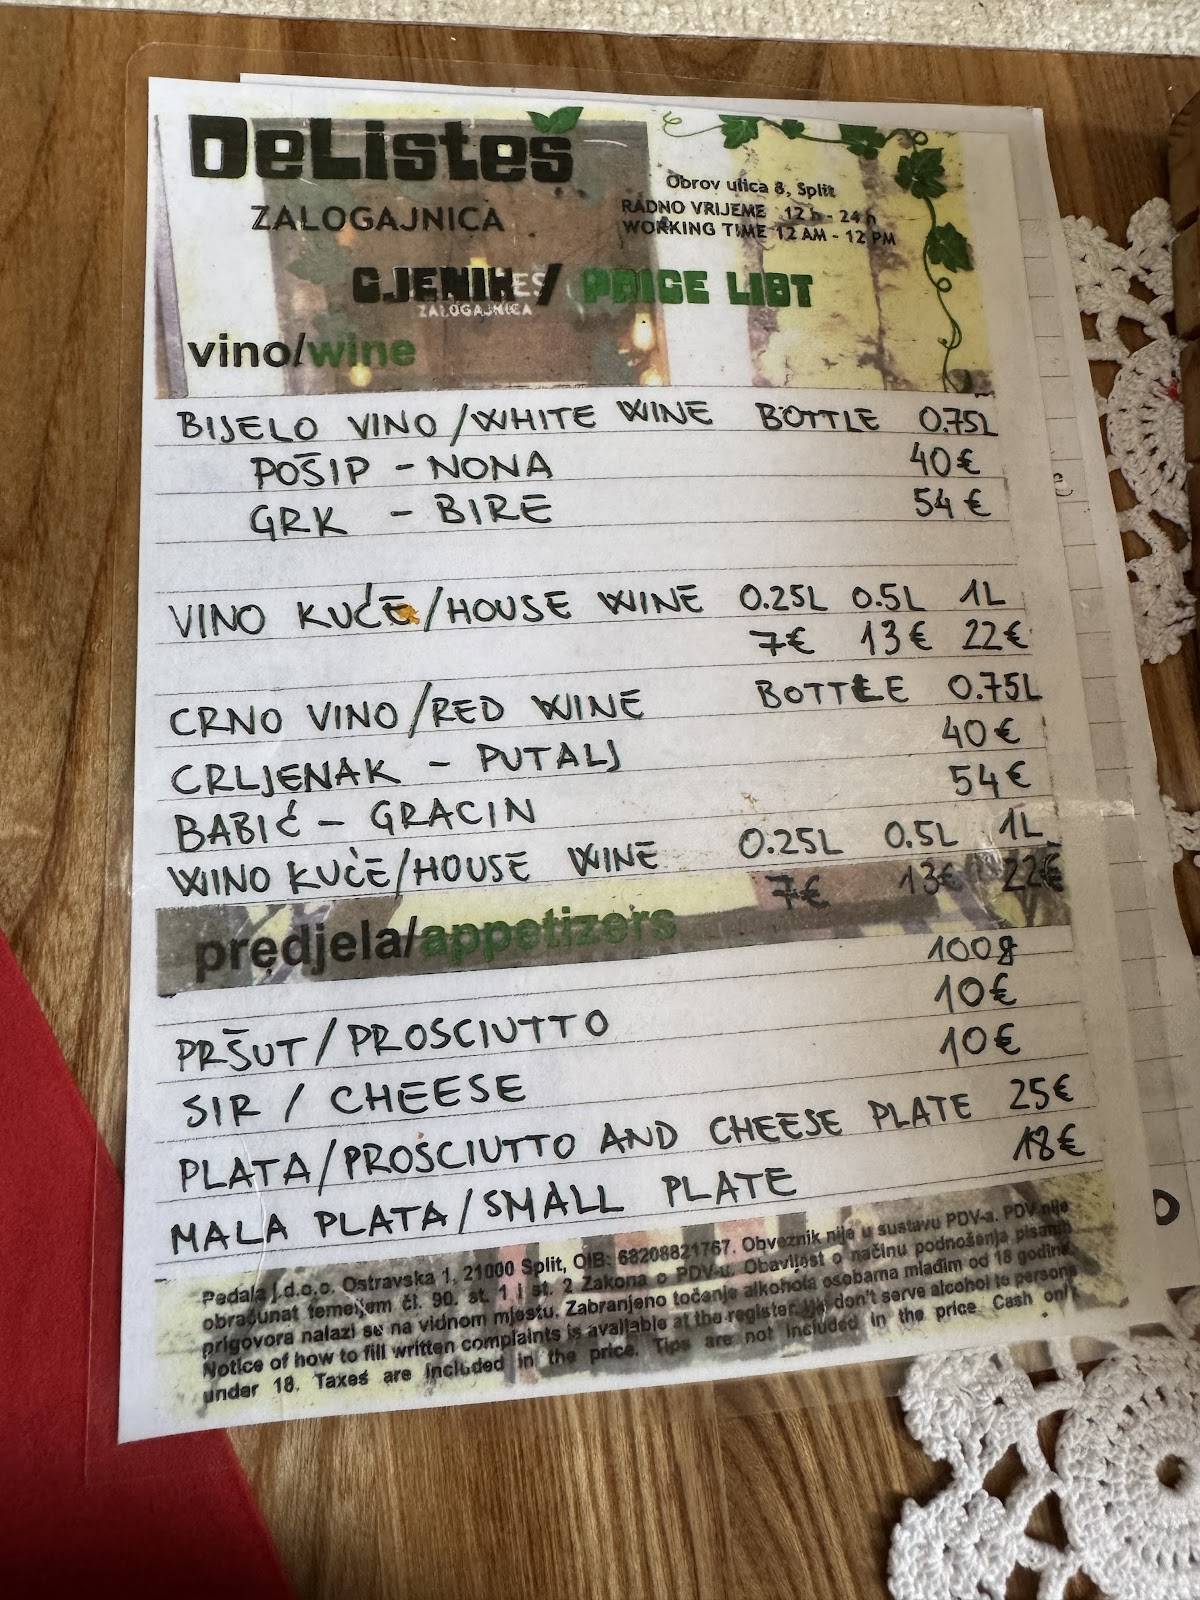 DeListeš
ZALOGAJNICA
Obrov ulica 8, Split
RADNO VRIJEME 12 h - 24 h
WORKING TIME 12 AM - 12 PM
CJENIK / PRICE LIST
ZALOGAJNICA
vino/wine
BIJELO VINO/WHITE WINE BOTTLE 0.75L
POŠIP - NONA 40€
GRK - BIRE 54€
VINO KUĆE/HOUSE WINE 0.25L 0.5L 1L
7€ 13€ 22€
CRNO VINO/RED WINE BOTTLE 0.75L
CRLJENAK - PUTALJ 40€
BABIĆ - GRACIN 54€
WINO KUĆE/HOUSE WINE 0.25L 0.5L 1L
7€ 13€ 22€
predjela/appetizers
100g
PRŠUT/PROSCIUTTO 10€
SIR / CHEESE 10€
PLATA/PROSCIUTTO AND CHEESE PLATE 25€
MALA PLATA/SMALL PLATE 18€
Pedala j.d.o.o. Ostravska 1, 21000 Split, OIB: 68208821767. Obveznik nije u sustavu PDV-a. PDV nije
obračunat temeljem čl. 90. st. 1 i st. 2 Zakona o PDV-u. Obavijest o načinu podnošenja pisanih
prigovora nalazi se na vidnom mjestu. Zabranjeno točenje alkohola osobama mlađim od 18 godina.
Notice of how to fill written complaints is available at the register. We don't serve alcohol to persons
under 18. Taxes are included in the price. Tips are not included in the price. Cash only